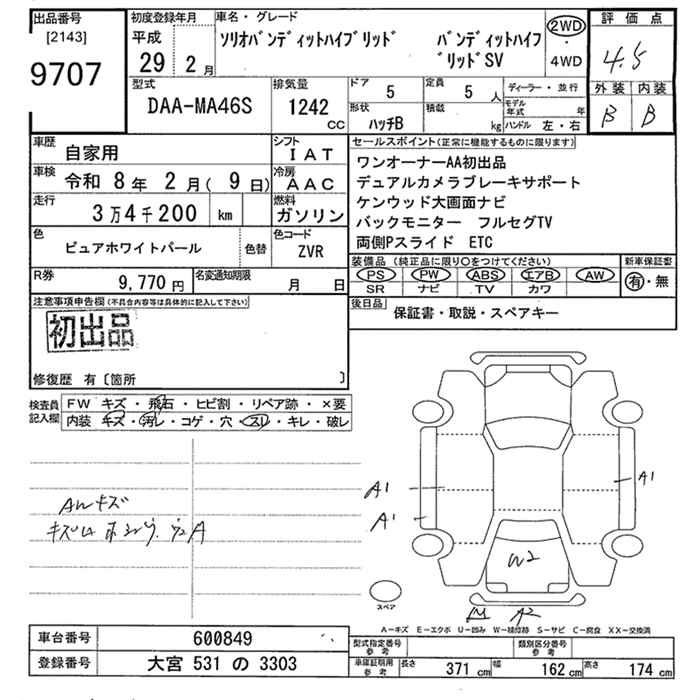 出品番号
[2143]
9707
初度登録年月
平成
29 2月
車名・グレード
ソリオバンディットハイブリッド バンディットハイブ
リッドSV
2WD
・
4WD
評価点
4.5
外装 内装
B B
型式
DAA-MA46S
排気量
1242
CC
ドア 5
定員 5 人
形状
ハッチB
積載
kg
ディーラー・並行
モデル年式 年
ハンドル 左・右
車歴
自家用
シフト
IAT
車検
令和 8年 2月( 9日)
冷房
AAC
走行
3万4千200 km
燃料
ガソリン
色
ピュアホワイトパール
色替
色コード
ZVR
R券 9,770円
名変通知期限 月 日
セールスポイント(正常に機能するものに限ります)
ワンオーナーAA初出品
デュアルカメラブレーキサポート
ケンウッド大画面ナビ
バックモニター フルセグTV
両側Pスライド ETC
装備品(純正品に限り○をつけてください)
新車保証書
PS PW ABS エアB AW
SR ナビ TV カワ
有・無
後日品
保証書・取説・スペアキー
注意事項申告欄(不具合内容等は具体的に記入して下さい)
初出品
修復歴 有〔箇所 〕
検査員
記入欄
FW キズ・飛石・ヒビ割・リペア跡・×要
内装 キズ・汚レ・コゲ・穴・スレ・キレ・破レ
AWキズ
A1
A1
A1
W2
スペア
A2
A-キズ E-エクボ U-凹み W-補修跡 S-サビ C-腐食 XX-交換済
車台番号 600849
登録番号 大宮 531 の 3303
型式指定番号
参考
類別区分番号
参考
車庫証明用
参考
長さ 371cm 幅 162cm 高さ 174cm